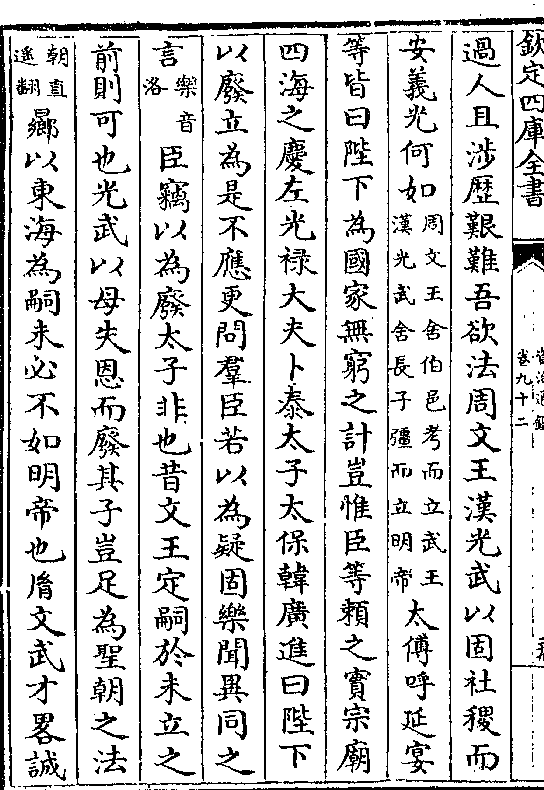 欽定四庫全書
資治通鑑
卷九十二
過人且涉歷艱難吾欲法周文王漢光武以固社稷而
安義光何如周文王舍伯邑考而立武王
漢光武舍長子彊而立明帝太傅呼延宴
等皆曰陛下為國家無窮之計豈惟臣等賴之實宗廟
四海之慶左光禄大夫卜泰太子太保韓廣進曰陛下
以廢立為是不應更問羣臣若以為疑固樂聞異同之
言樂音
洛臣竊以為廢太子非也昔文王定嗣於未立之
前則可也光武以母失恩而廢其子豈足為聖朝之法
朝直
遥翻曏以東海為嗣未必不如明帝也㣧文武才畧誠